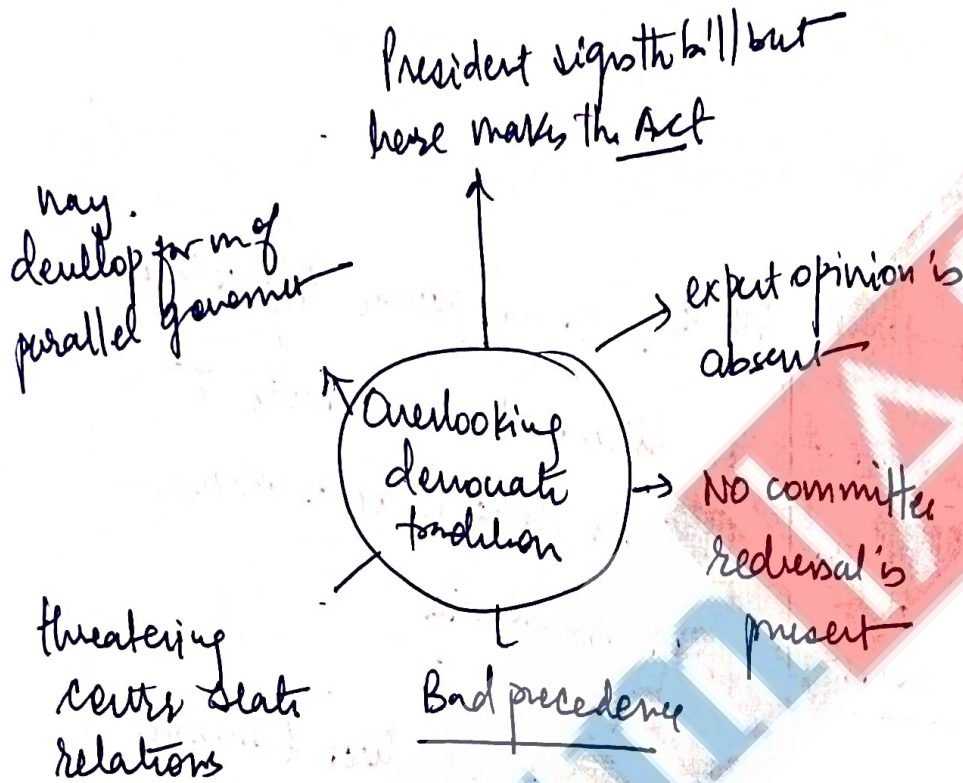 President signs th bill but
here makes the Act
may
develop form of
parallel governmet
expert opinion is
absent
Overlooking
democratic
tradition
No committee
redressal is
present
threatering
centre state
relations
Bad precedency
IAS
m